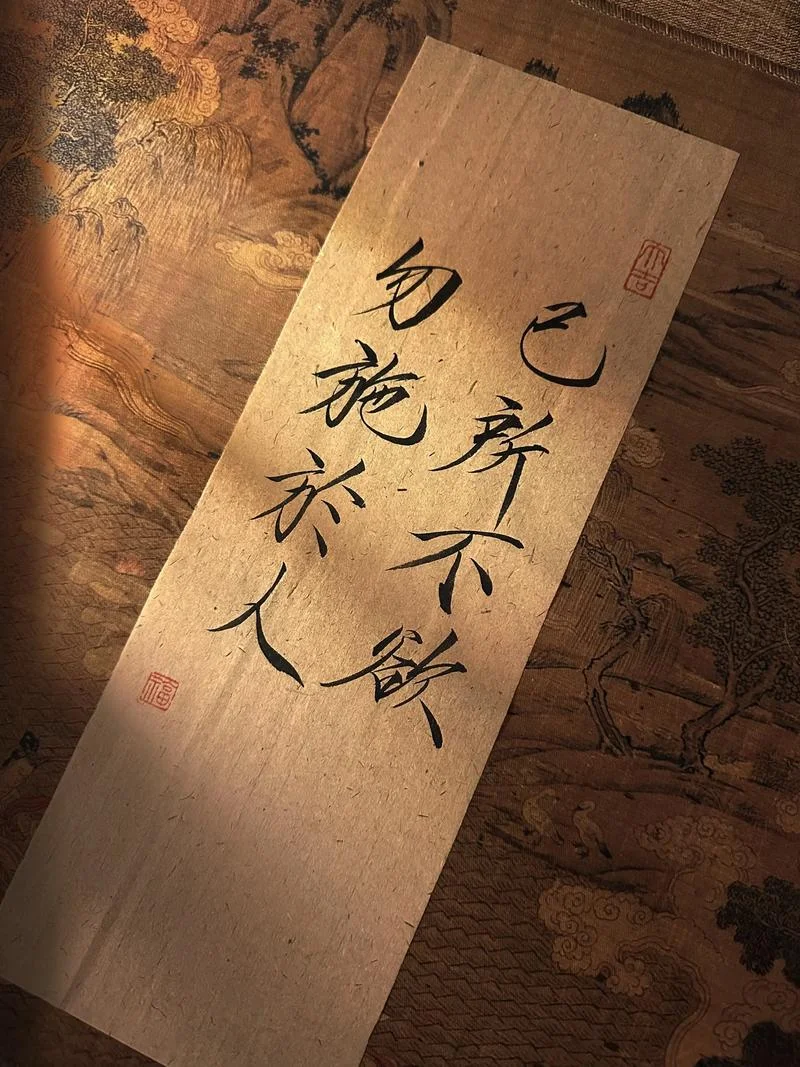 大吉
己所不欲
勿施於人
福